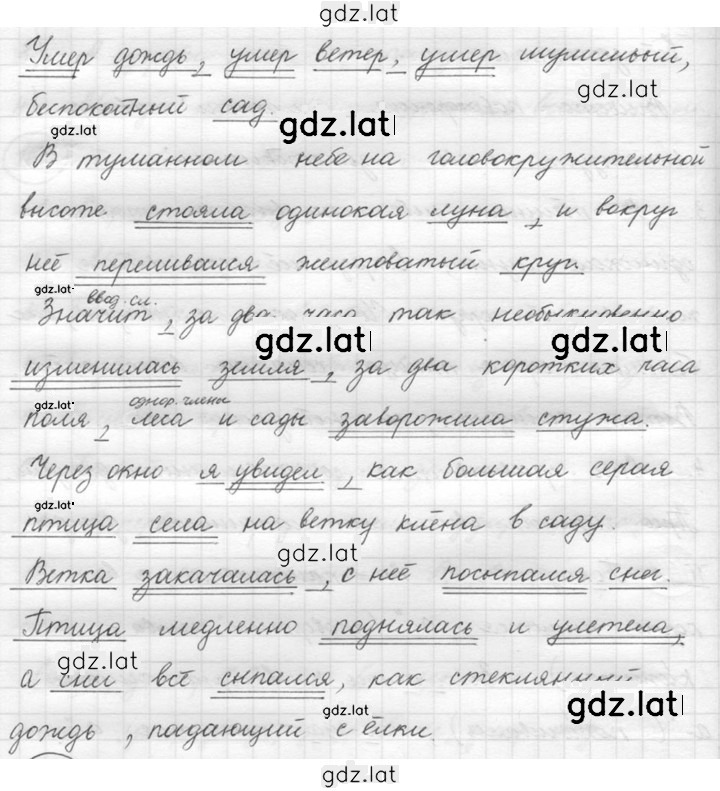 gdz.lat
Умер дождь, умер ветер, умер шумливый,
gdz.lat
беспокойный сад.
gdz.lat
gdz.lat
В туманном небе на головокружительной
высоте стояла одинокая луна, и вокруг
неё переливался желтоватый круг.
gdz.lat
ввод. сл.
Значит, за два часа так необыкновенно
gdz.lat
gdz.lat
изменилась земля, за два коротких часа
gdz.lat
однор. члены
поля, леса и сады заворожила стужа.
Через окно я увидел, как большая серая
gdz.lat
птица села на ветку клёна в саду.
gdz.lat
Ветка закачалась, с неё посыпался снег.
Птица медленно поднялась и улетела,
gdz.lat
а снег всё сыпался, как стеклянный
gdz.lat
gdz.lat
дождь, падающий с ёлки.
gdz.lat